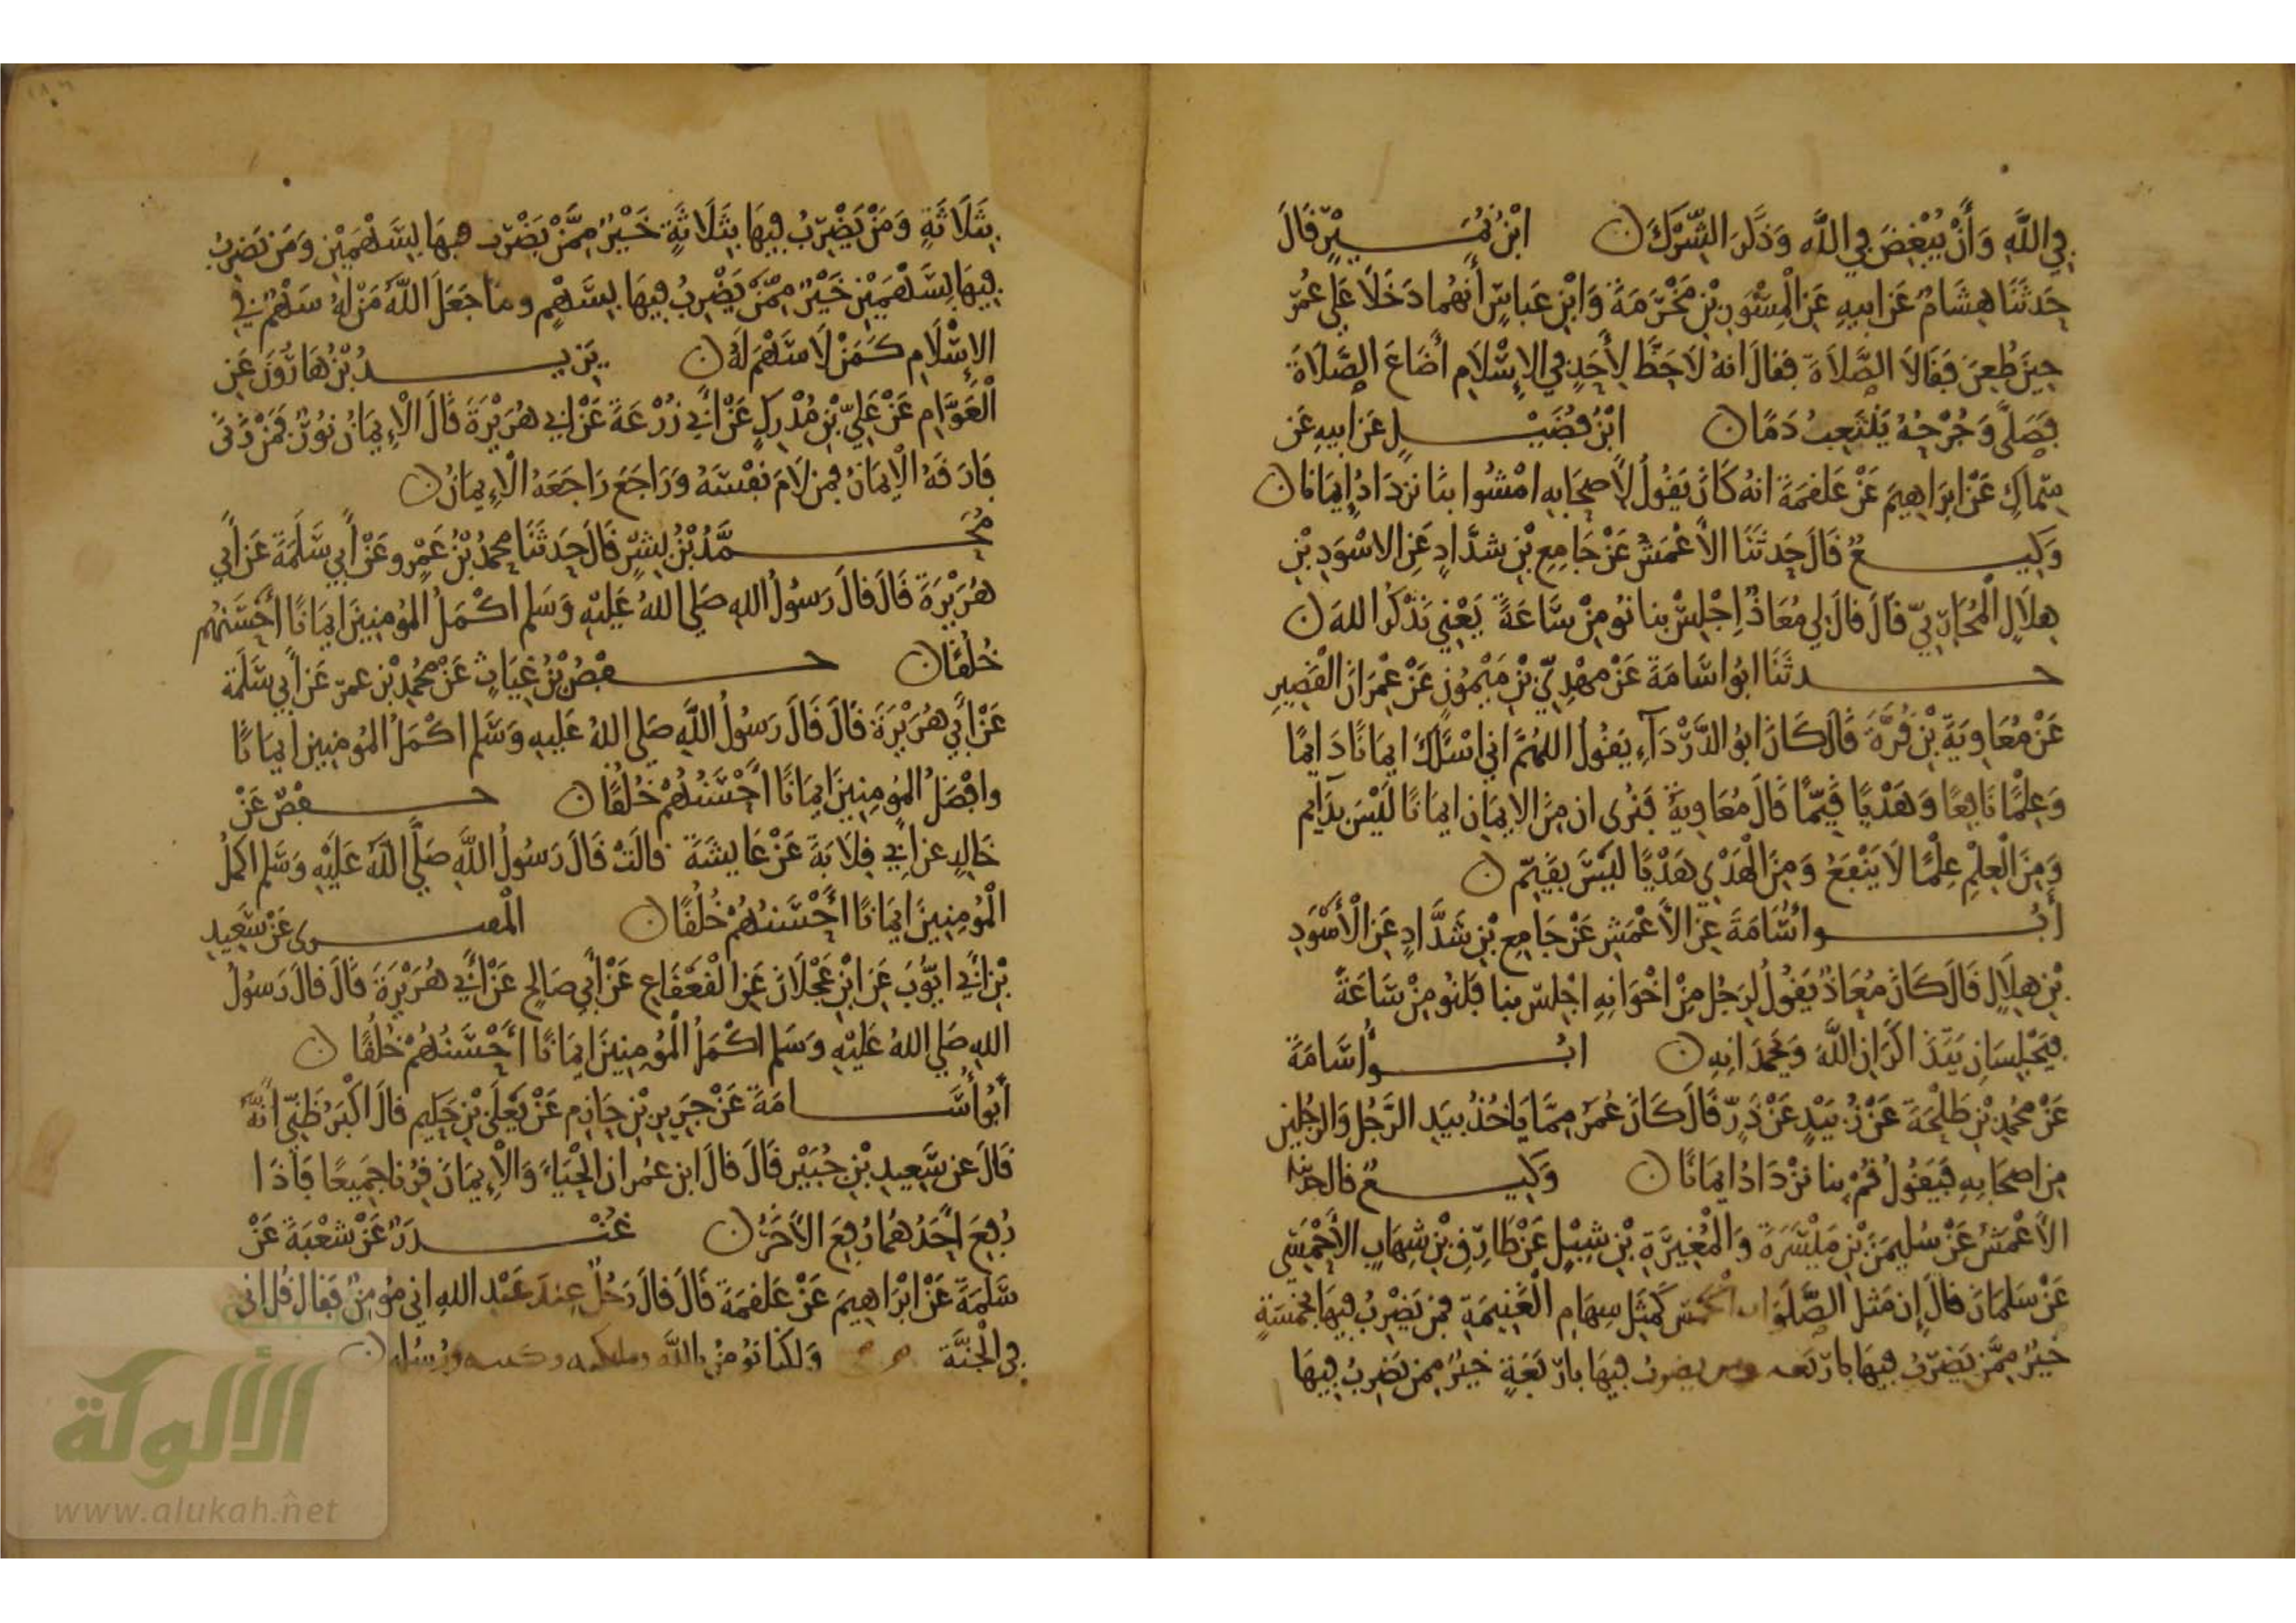 فِي اللَّهِ وَأَنْ يُبْغِضَ فِي اللَّهِ وَذَكَرَ الشِّرْكَ ن ابْنُ نُمَيْرٍ قَالَ
حَدثَنَا هِشَامٌ عَن ابيهِ عَنِ الْمِسْوَرِ بْنِ مَخْرَمَةَ وَابْنِ عَباسٍ أنهُما دَخَلَا عَلى عُمَرَ
حِينَ طُعِنَ فَقَالَا الصَّلاَةَ فقالَ انهُ لَا حَظَّ لِأَحَدٍ فِي الاِسْلَامِ أضَاعَ الصَّلاَةَ
فَصَلَّى وَجُرْحُهُ يَثْعَبُ دَمًا ن ابْنُ فُضَيْلٍ عَن ابيهِ عَن
سِمَاكٍ عَنْ ابرَاهِيمَ عَنْ عَلقمَةَ انهُ كَانَ يَقُولُ لِأَصحَابِهِ امْشُوا بنَا نزدَادُ إِيمَانًا ن
وَكِيعٌ قَالَ حَدثَنَا الأَعْمَشُ عَنْ جَامِعِ بْنِ شدَّادٍ عَنِ الاسْوَدِ بْنِ
هِلَالٍ الْمُحَارِبِيِّ قَالَ قالَ لِي مُعَاذٌ اِجْلِسْ بنا نُومِنْ سَاعَةً يَعْنِي نَذْكرُ اللهَ ن
حدثَنَا ابُو اسَامَةَ عَنْ مهْدِيِّ بْنِ مَيْمُونٍ عَنْ عِمْرَانَ الْقَصِيرِ
عَنْ مُعَاوِيَةَ بْنِ قُرَّةَ قَالَ كَانَ ابُو الدَّرْدَآءِ يَقُولُ اللهُمَّ اني اسْألكَ ايمَانًا دَايمًا
وَعِلْمًا نَافِعًا وَهَدْيًا قَيِّمًا قَالَ مُعَاوِيَةُ فَنُرى ان مِنَ الايمَانِ ايمَانًا لَيْسَ بدَآيم
وَمِنَ الْعِلْمِ عِلْمًا لَا يَنْفَعُ وَمِنَ الْهَدْيِ هَدْيًا لَيْسَ بقَيِّمٍ ن
أَبُو اسُامَةَ عَنِ الأَعْمَشِ عَنْ جَامِعِ بْنِ شَدَّادٍ عَنِ الْأَسْوَدِ
بْنِ هِلَالٍ قَالَ كَانَ مُعَاذٌ يَقُولُ لِرَجُلٍ مِنْ اخْوَانِهِ اجْلِسْ بنا فلنُومِنْ سَاعَةً
فيَجْلِسَانِ يَتَذَاكَرَانِ اللَّهَ وَيَحْمَدَانِهِ ن ابُو أسَامَةَ
عَنْ محُمدِ بْنِ طَلْحَةَ عَنْ زُبَيْدٍ عَنْ ذَرٍّ قَالَ كَانَ عُمَرُ مِمَّا يَاخُذُ بيَدِ الرَّجُلِ وَالرجُلينِ
مِن اصحَابِهِ فَيَقُولُ قُمْ بنا نزْدَادُ ايمَانًا ن وَكِيعٌ قال حدثنا
الأَعْمَشُ عَنْ سُليمَنَ بْنِ مَيْسَرَةَ وَالْمُغِيرَةِ بْنِ شِبْلٍ عَنْ طَارِقِ بْنِ شِهَابٍ الأَحْمَسِي
عَنْ سَلمَانَ قالَ إِن مَثَلَ الصَّلَوَات الْخمس كَمَثَلِ سِهَامِ الْغَنِيمَةِ فمَن يَضْرِبُ فِيهَا بخمسَةٍ
خيْرٌ مِمَّن يَضرِبُ فيهَا باربَعه ومن يضرب فيهَا باربَعَةٍ خيْرٌ ممن يَضرِبُ فِيهَا
بِثَلَاثَةٍ وَمَنْ يَضْرِبُ فِيهَا بِثَلَاثَةٍ خَيْرٌ مِمَّنْ يَضْرِبُ فيهَا بِسَهْمَيْنِ وَمَن يَضرِبُ
فِيهَا بِسَهْمَيْنِ خَيْرٌ مِمَّنْ يَضْرِبُ فِيهَا بِسَهْمٍ وما جَعَلَ اللَّهُ مَنْ لهُ سَهْمٌ فِي
الاِسْلَامِ كَمَنْ لَا سَهْمَ لَهُ ن يَزِيدُ بْنُ هَارُونَ عَنِ
الْعَوَّامِ عَنْ عَلِيِّ بْنِ مُدْرِكٍ عَنْ أبِي زُرْعَةَ عَنْ ابي هُرَيْرَةَ قَالَ الْاِيمَانُ نُورٌ فمَنْ زَنَى
فَارَقَهُ الْايمَانُ فمن لَامَ نَفْسَهُ وَرَاجَعَ رَاجَعَهُ الْاِيمَانُ ن
مُحَمَّدُ بْنُ بِشْرٍ قَالَ حَدثَنَا محمدُ بْنُ عَمْرٍو عَنْ أَبِي سَلَمَةَ عَنْ أَبي
هُرَيْرَةَ قَالَ قالَ رَسُولُ اللهِ صَلى اللهُ عَليْهِ وَسَلم اكْمَلُ المُومِنِينَ ايمَانًا أَحْسَنهُم
خُلُقًا ن حفْصُ بْنُ غِيَاثٍ عَنْ محُمدِ بْنِ عمرٍ عَنْ أَبي سَلَمَة
عَنْ أَبِي هُرَيْرَةَ قَالَ قَالَ رَسُولُ اللَّهِ صَلى اللهُ عَليهِ وَسَلم اكْمَلُ المُومِنِينَ ايمَانًا
وافْضَلُ المُومِنِينَ ايمَانًا أَحْسَنُهُمْ خُلُقًا ن حفْصٌ عَنْ
خَالِدٍ عن ابِي قِلَابَةَ عَنْ عَايشَةَ قالَتْ قَالَ رَسُولُ اللَّهِ صَلَّى اللَّهُ عَلَيْهِ وَسَلم اكمَلُ
الْمُومِنِينَ ايمَانًا أَحْسَنُهُمْ خُلُقًا ن الْمقرى عَنْ سَعِيدِ
بْنِ ابِي ايُّوبَ عَنِ ابْنِ عَجْلَانَ عَنِ الْقعْقَاعِ عَنْ أَبِي صَالِحٍ عَنْ أَبِي هُرَيْرَةَ قَالَ قالَ رَسُولُ
اللهِ صَلى اللهُ عَلَيْهِ وَسَلم اكْمَلُ الْمُومِنِينَ ايمَانًا أَحْسَنُهُمْ خُلُقًا ن
أَبُو أُسَامَةَ عَنْ جرِيرِ بْنِ حَازِمٍ عَنْ يَعْلَى بْنِ حَكِيمٍ قالَ اكْبَرُ ظَنِّي أَنَّهُ
قَالَ عن سَعِيدِ بْنِ جُبَيْرٍ قَالَ قالَ ابن عُمَر ان الْحَيَاءَ وَالْاِيمَانَ قُرنا جَمِيعًا فَاذَا
رُفِعَ أَحَدُهُمَا رُفِعَ الأَخَرُ ن غُنْدَرٌ عَنْ شعْبَةَ عَنْ
سَلَمَةَ عَنْ ابْرَاهِيمَ عَنْ عَلقمَةَ قَالَ قالَ رَجُلٌ عِندَ عَبْدِ اللهِ اني مُومِنٌ فَقالَ قُل اني
فِي الْجَنَّةِ وَلَكنا نُومنُ باللَّه وملايكته وكتبه ورُسُله ن
الألوكة
www.alukah.net